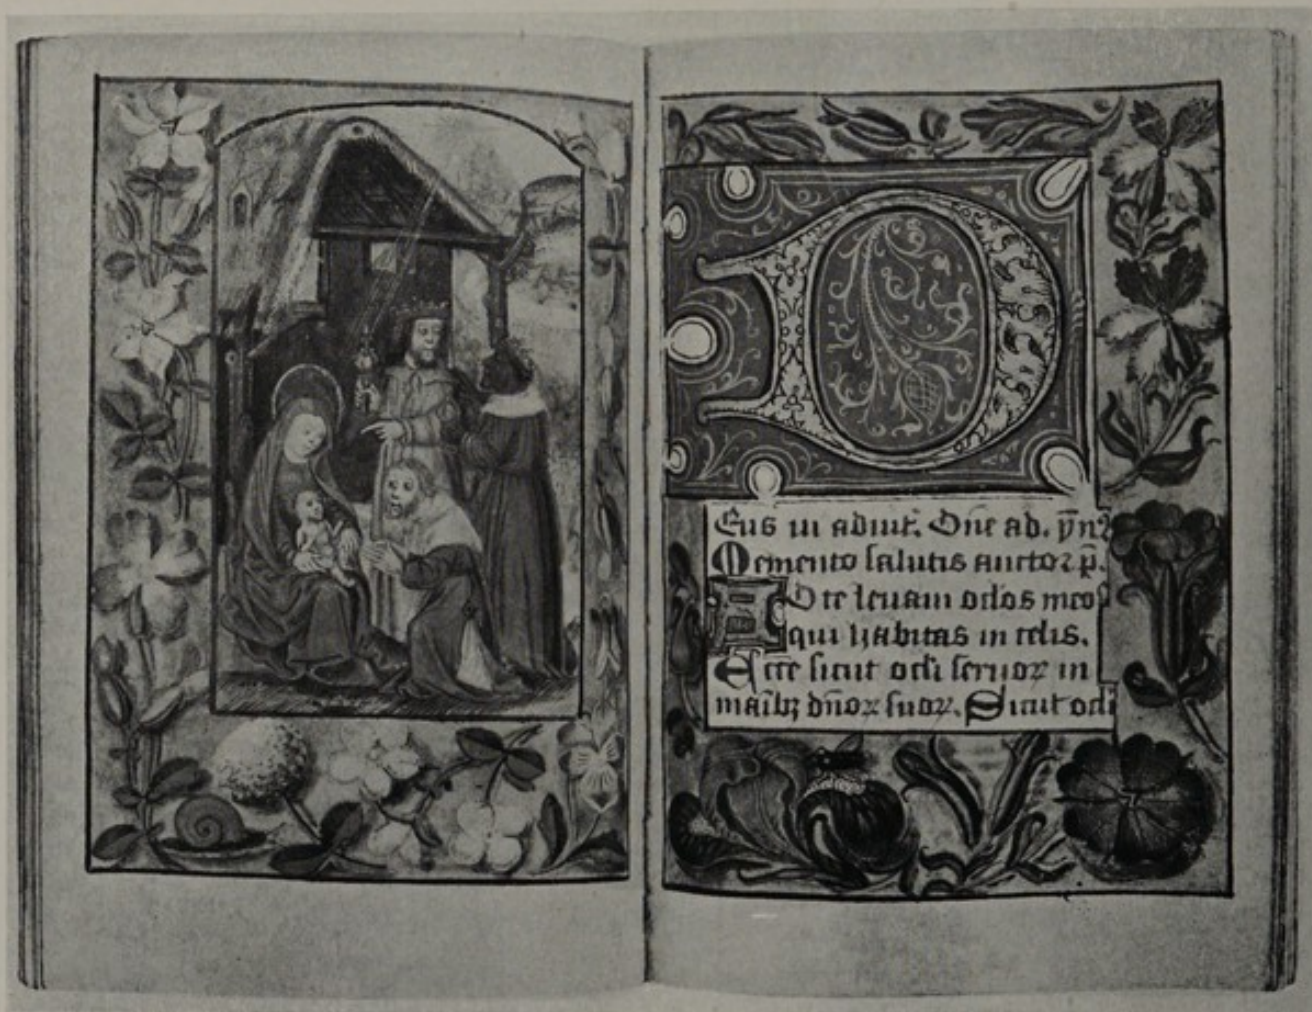 D
Eus in adiut. Dn̄e ad. ym̄.
Memento salutis auctor p̄.
AD te leuaui oc̄los meos
qui habitas in celis.
Ecce sicut oc̄li seruoꝝ in
maību̅s dn̄oꝝ suoꝝ. Sicut oc̄li